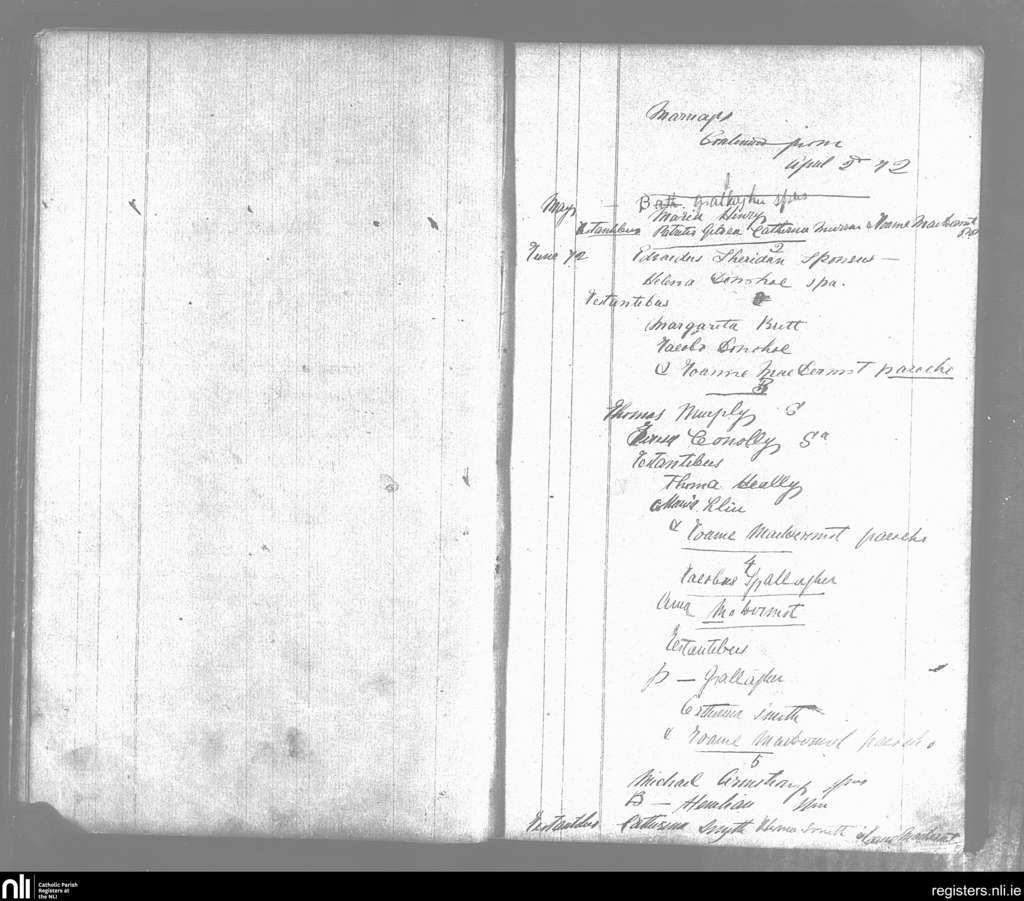 Marriages
Continued from
April 5th 72
1
May — Bath. Gallagher spus
Maria Henry
Testantibus Patritio Gilvea Catherina & Joanne MacDermot PP
2
June 72 Edvardus Sheridan Sponsus —
Helena Donohoe spa.
Testantibus
Margarita Britt
Jacobo Donohoe
& Joanne MacDermot parocho
3
Thomas Murphy S
Conolly Sa
Testantibus
Thoma Heally
Maria Klin
& Joanne MacDermot parocho
4
Jacobus Gallagher
Anna McDermot
Testantibus
P — Gallagher
Catherina Smith
& Joanne MacDermot parocho
5
Michael Armstrong spus
B — Henehan
Testantibus Catherina Smyth Thoma Smith & Joanne MacDermot
nli Catholic Parish
Registers at
the NLI
registers.nli.ie